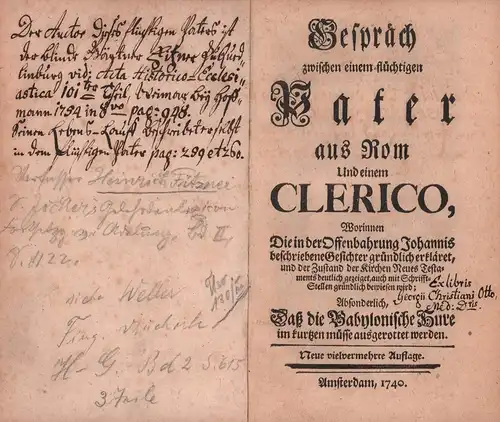 Der Autor dieses flüchtigen Paters ist
der blinde
linburg vid: Acta Historico-Ecclesi-
astica 101ter Theil. Weimar bey Hoff-
mann 1754 in 8vo pag: 948.
Seinen Lebens-Lauff beschreibet er selbst
in dem flüchtigen Pater pag: 259 et 260.
Verfasser Heinrich Fitzner
s. Jöchers Gelehrtenlexicon
Fortsetzg von Adelung, Bd II,
S. 1122.
siehe Weller
H-G. Bd 2 S. 615
3 Teile
Gespräch
zwischen einem flüchtigen
Pater
aus Rom
Und einem
CLERICO,
Worinnen
Die in der Offenbahrung Johannis
beschriebene Gesichter gründlich erkläret,
und der Zustand der Kirchen Neues Testa-
ments deutlich gezeiget, auch mit Schrifft-
Stellen gründlich bewiesen wird;
Absonderlich,
Daß die Babylonische Hure
im kurtzen müsse ausgerottet werden.
Exlibris
Georgii Christiani Otto
Med: Dris.
Neue vielvermehrte Auflage.
Amsterdam, 1740.